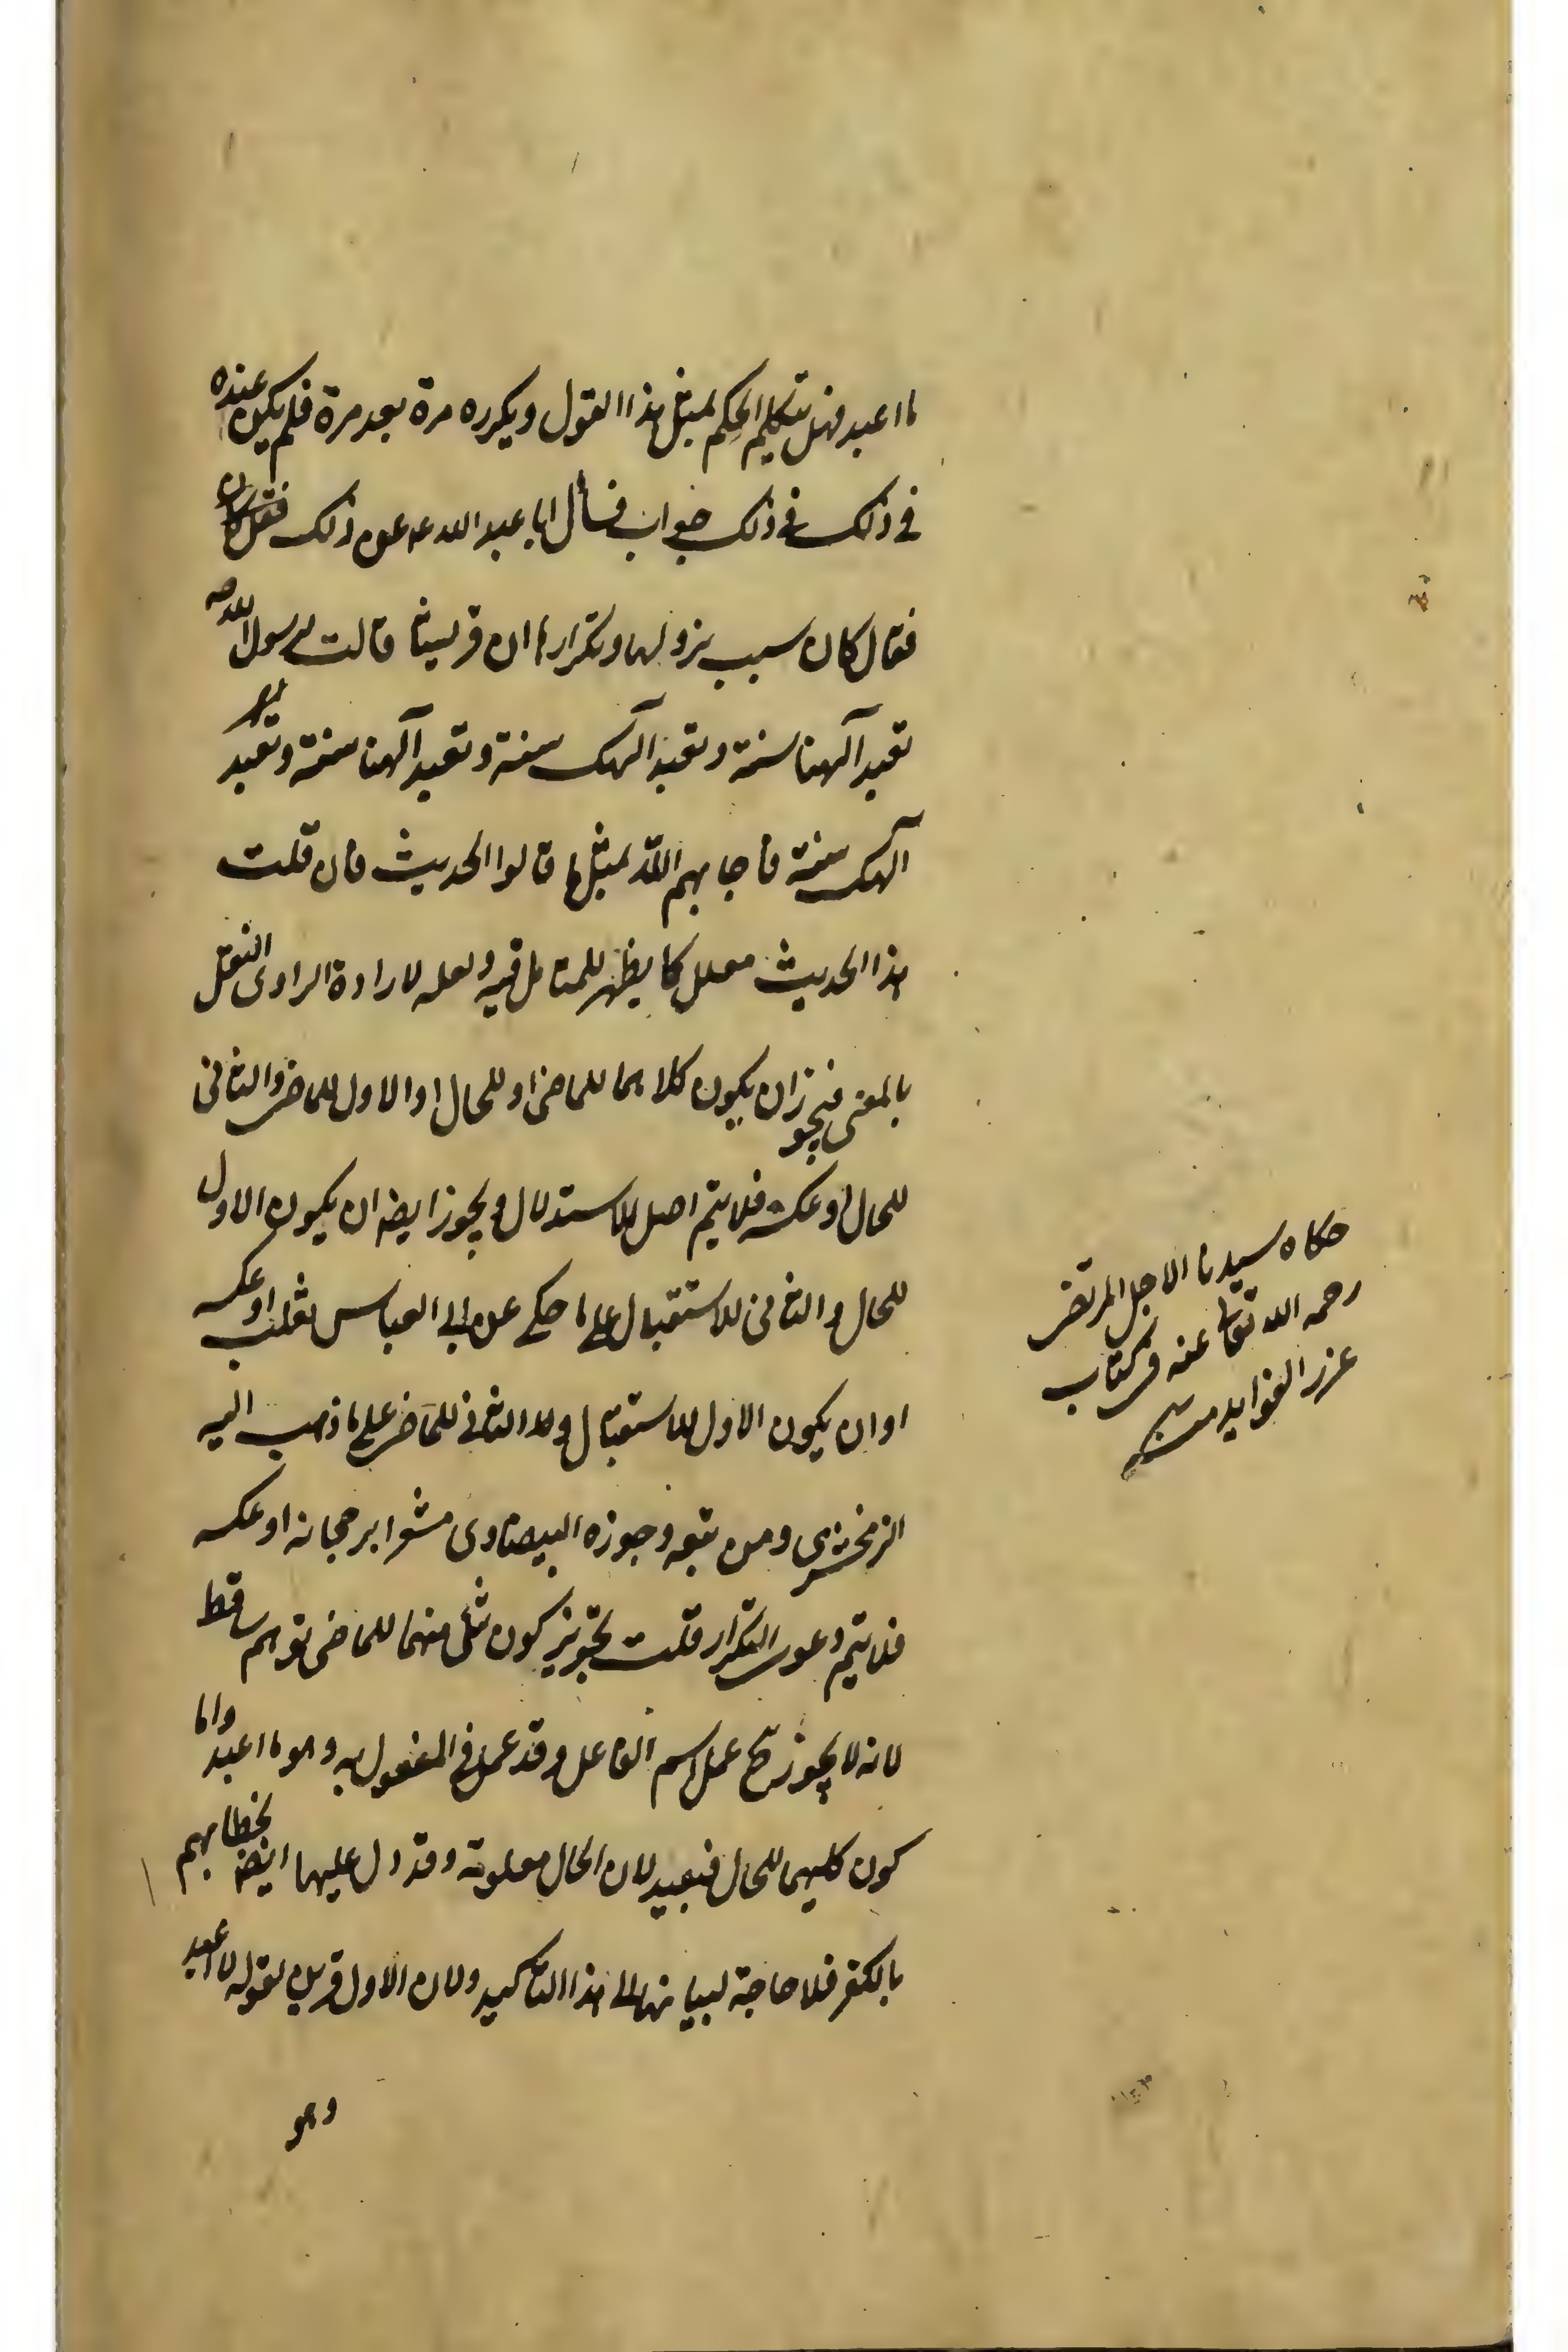 ما اعبد فهل يتكلم الحكيم بمثل هذا القول ويكرره مرة بعد مرة فلم يكن عنده
في ذلك في ذلك جواب فسأل ابا عبد الله ع عن ذلك
فقال كان سبب نزولها وتكرارها ان قريشا قالت لرسول الله ص
تعبد آلهتنا سنة ونعبد الهك سنة وتعبد آلهتنا سنة ونعبد
الهك سنة فاجابهم الله بمثل ما قالوا الحديث فان قلت
هذا الحديث معلل كما يظهر للمتامل فيه ولعله لارادة الراوى النقل
بالمعنى فيجوز ان يكون كلاهما للماضى او للحال او الاول للماضى والثانى
للحال او عكسه فلا يتم اصل الاستدلال ويجوز ايضا ان يكون الاول
للحال والثانى للاستقبال على ما حكى عن ابى العباس ثعلب او عكسه
او ان يكون الاول للاستقبال والثانى للماضى على ما ذهب اليه
الزمخشرى ومن تبعه وجوزه البيضاوى مشعرا برجحانه او عكسه
فلا يتم دعوى التكرار قلت تجويز كون شئ منهما للماضى توهم ساقط
لانه لا يجوز ح عمل اسم الفاعل وقد عمل في المفعول به وهو ما اعبد واما
كون كليهما للحال فبعيد لان الحال معلومة وقد دل عليها ايضا خطابهم
بالكفر فلا حاجة لبيانها الى هذا التاكيد ولان الاول قرين لقوله لا اعبد
وهو
حكاه سيدنا الاجل المرتضى
رحمه الله تعالى عنه في كتاب
غرر الفوايد منه